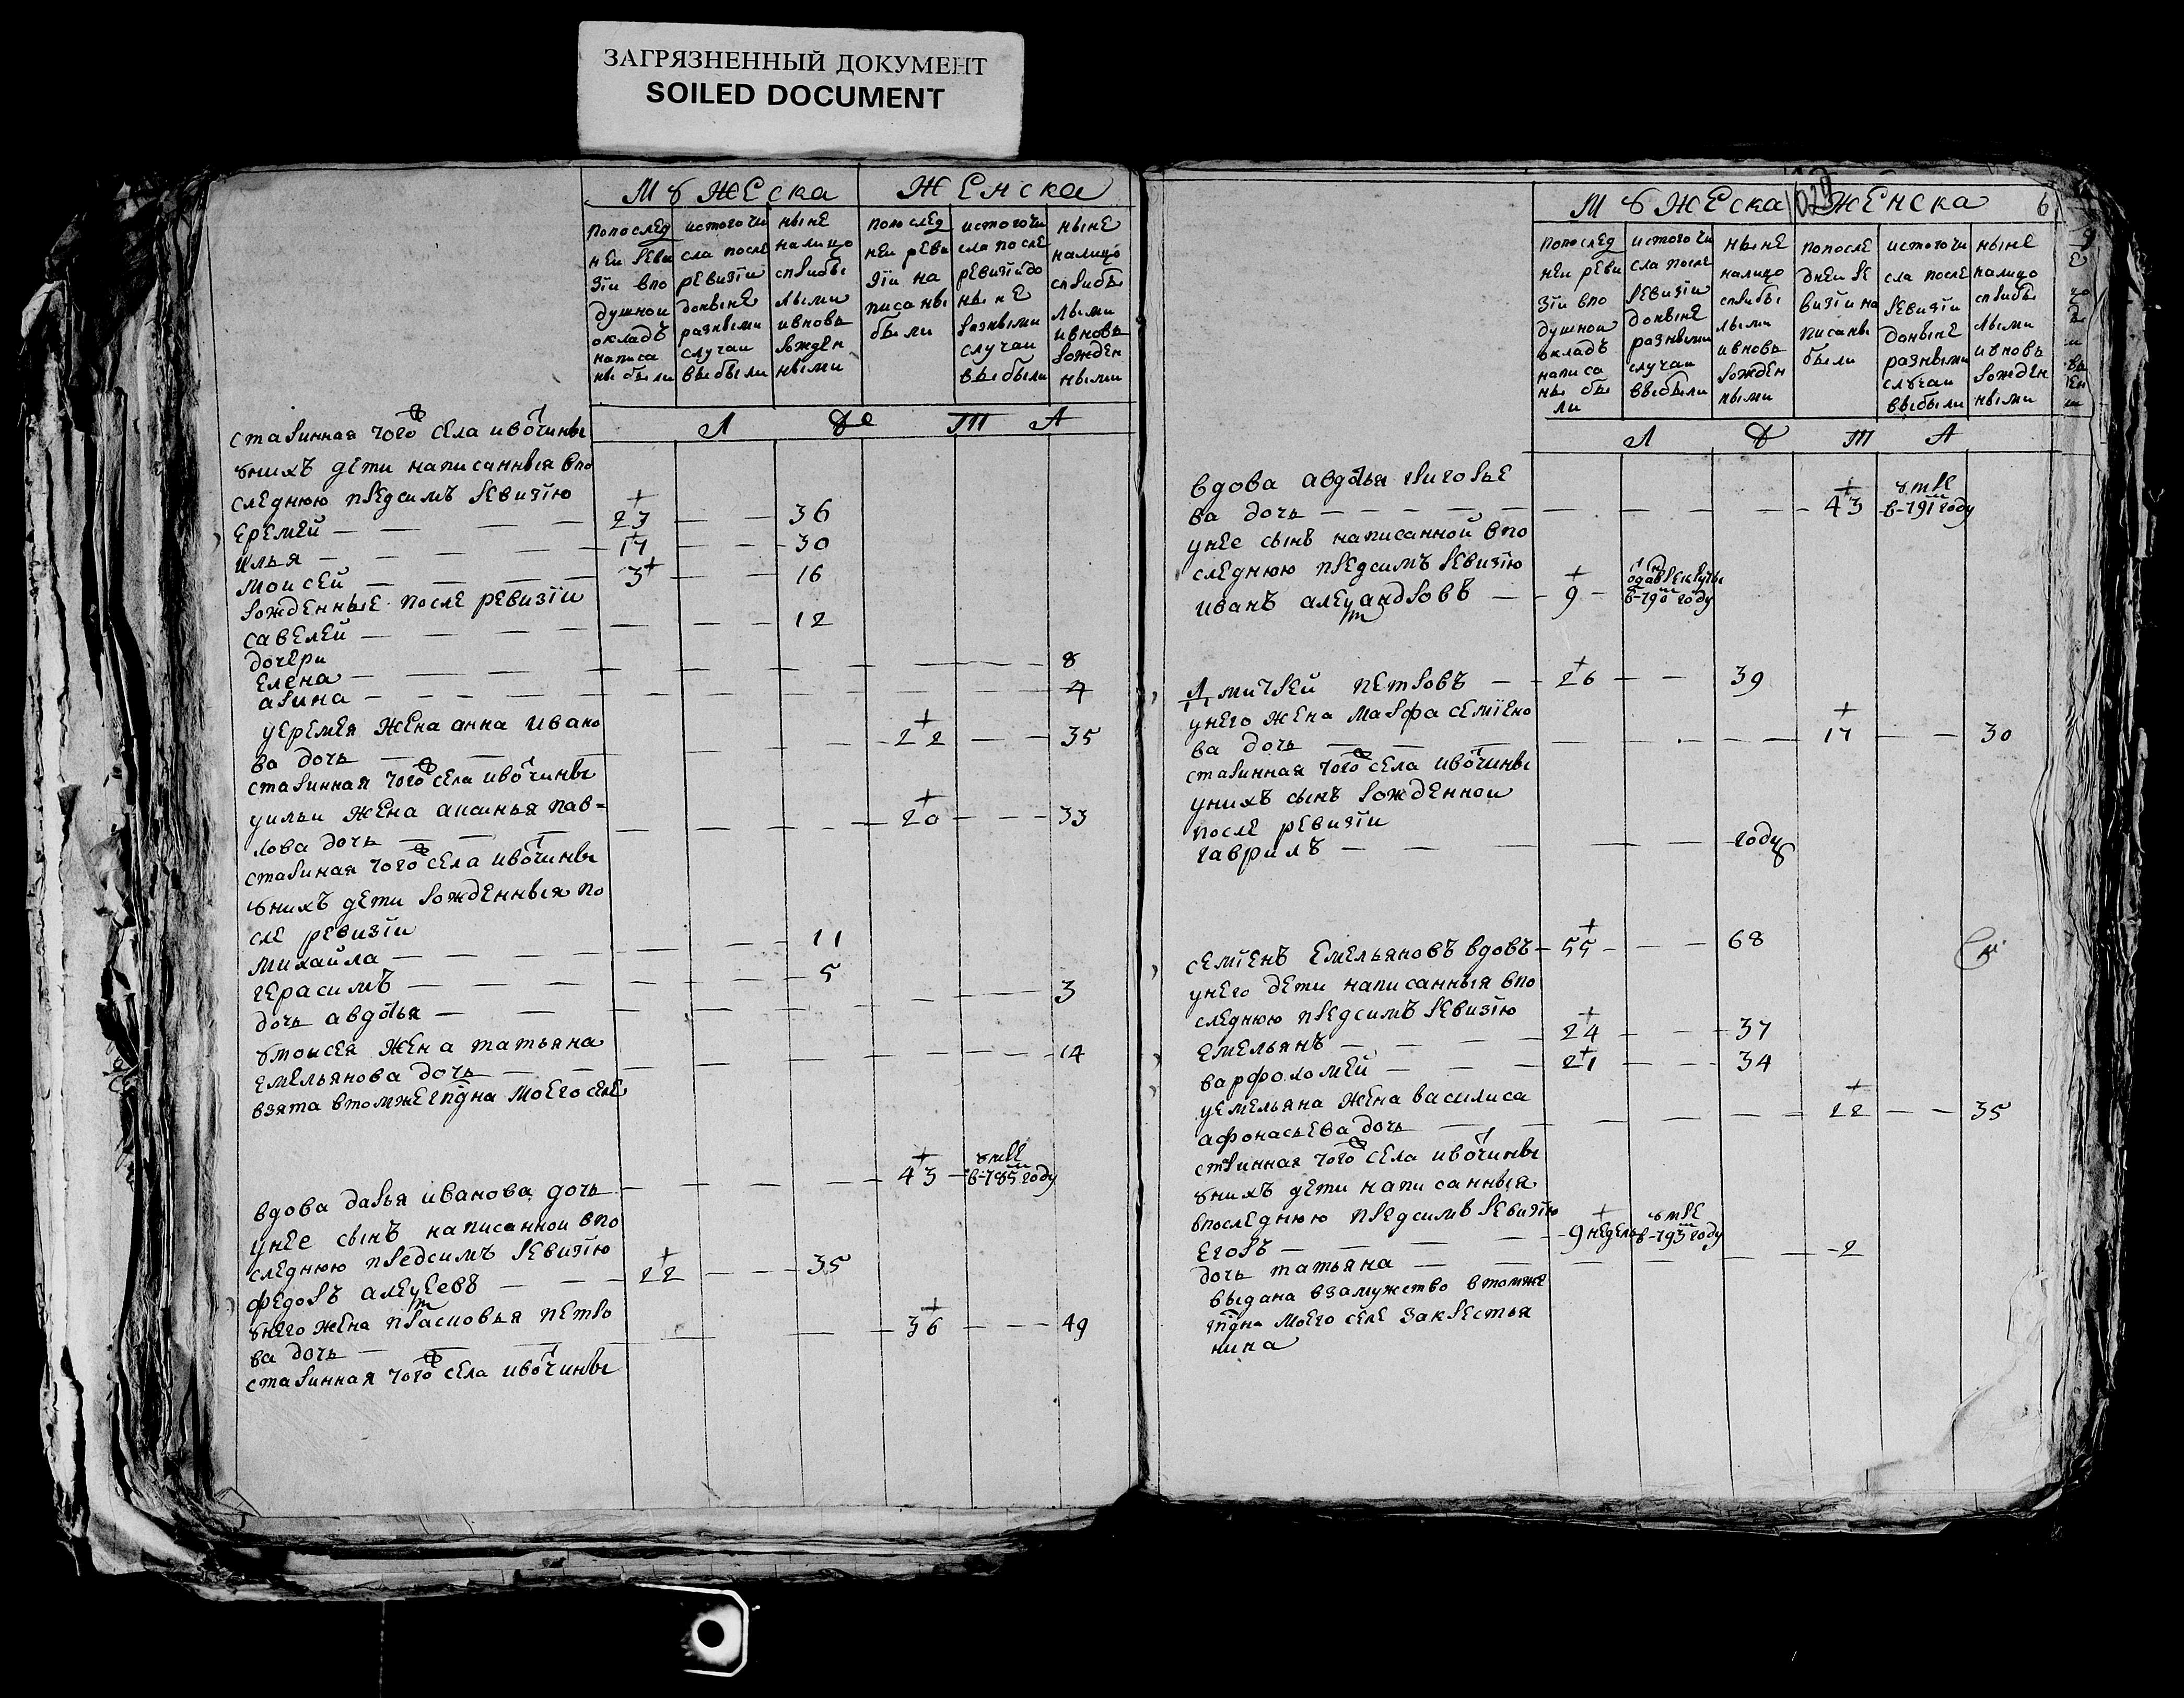 ЗАГРЯЗНЕННЫЙ ДОКУМЕНТ
SOILED DOCUMENT
Мужеска Женска
попослед неи реви зіи впо душнои окладъ написа ны были
истого чи сла после ревизіи доныне разными случаи выбыли
ныне налицо сприбы лыми ивновь рожден ными
попослед неи реви зіи на писаны были
истого чи сла после ревизіи до ныне разными случаи выбыли
ныне налицо сприбы лыми ивновь рожден ными
Л Ѣ Т А
старинная того села ивотчины
унихъ дети написанныя впо
следнюю предсимъ ревизію
еремей — 23 — 36
илья — 17 — 30
моисей — 3 — 16
рожденные после ревизіи
савелей — 12
дочери
елена — 8
арина — 4
уеремея жена анна ивано
ва дочь — 22 — 35
старинная того села ивотчины
уильи жена аксинья пав=
лова дочь — 20 — 33
стариная того села ивотчины
унихъ дети рожденныя по
сле ревизіи
михаила — 11
герасимъ — 5
дочь авдотья — 3
умоисея жена татьяна
емельянова дочь — 14
взята втомже гпдна моего селе
вдова дарья иванова дочь — 43 — умре в-785м году
унее сынъ написаннои впо
следнюю предсимъ ревизію
федоръ алексеевъ — 22 — 35
унего жена прасковья петро
ва дочь — 36 — 49
старинная того села ивотчины
Мужеска Женска 6
попослед неи реви зіи впо душнои окладъ написа ны бы ли
истого чи сла после ревизіи доныне разными случаи выбыли
ныне налицо сприбы лыми ивновь рожден ными
попосле днеи ре визіи на писаны были
истого чи сла после ревизіи доныне разными случаи выбыли
ныне налицо сприбы лыми ивновь рожден ными
Л Ѣ Т А
вдова авдотья григорье
ва дочь — 43 умре в-791м году
унее сынъ написанной впо
следнюю предсимъ ревизію
иванъ александровъ — 9 — отдавъ рекруты в-790м году
дмитрей петровъ — 26 — 39
унего жена марфа семіено
ва дочь — 17 — 30
старинная того села ивотчины
унихъ сынъ рожденнои
после ревизіи
гаврилъ — году
семіенъ емельяновъ вдовъ — 55 — 68
унего дети написанныя впо
следнюю предсимъ ревизію
емельянъ — 24 — 37
варфоломей — 21 — 34
уемельяна жена василиса
афонасьева дочь — 22 — 35
старинная того села ивотчины
унихъ дети написанныя
впоследнюю предсимъ ревизію
егоръ — 9 недель умре в-793м году
дочь татьяна — 2
выдана взамужство втомже
гпдна моего селе закрестья
нина